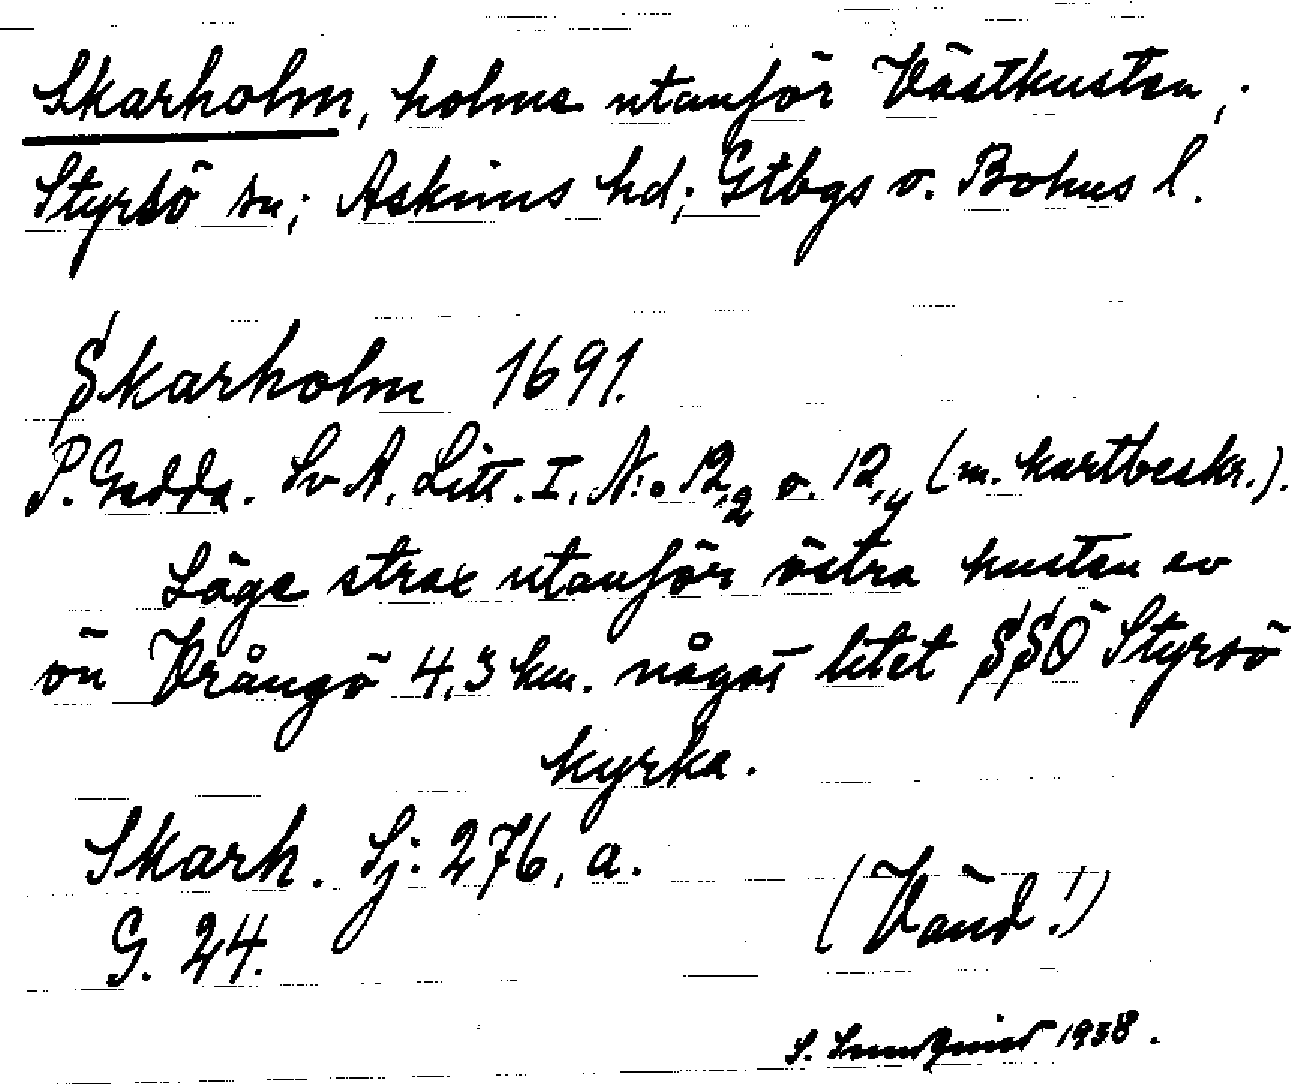 Skarholm, holme utanför Västkusten,.
Styrsö sn; Askims hd; Gtbgs o. Bohus l.
Skarholm 1691.
P. Gedda. Sv A. Litt. I. N:o 12,2 o. 12,4 (m. kartbeskr.).
Läge strax utanför östra kusten av
ön Vrångö 4,3 km. något litet SSÖ Styrsö
kyrka.
Skarh. Sj: 276, a.
G. 24.
(Vänd!)
S. 1938.